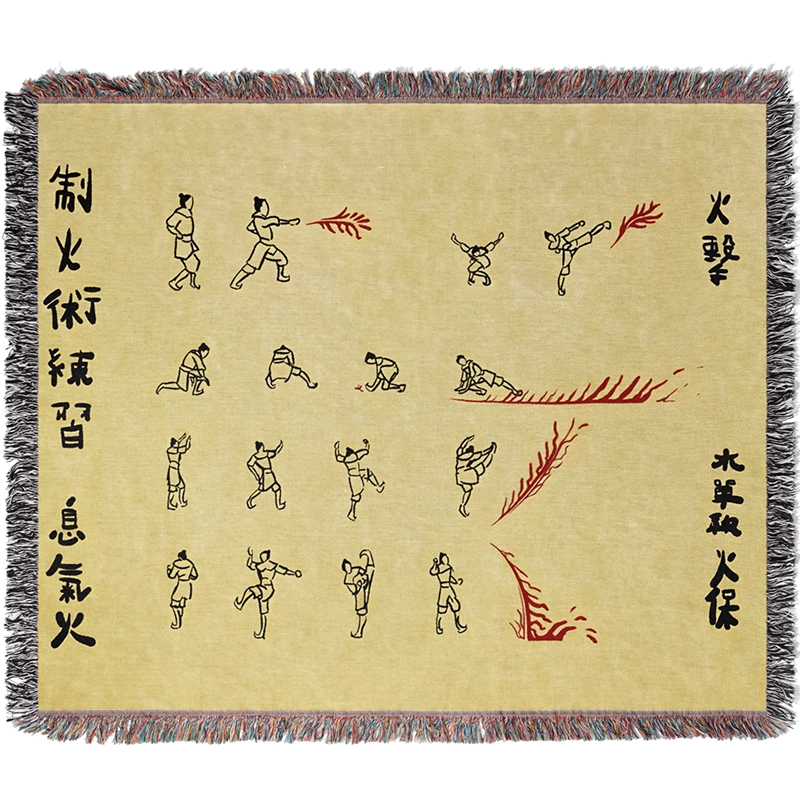 火擊
水單級火保
制火術練習 息氣火